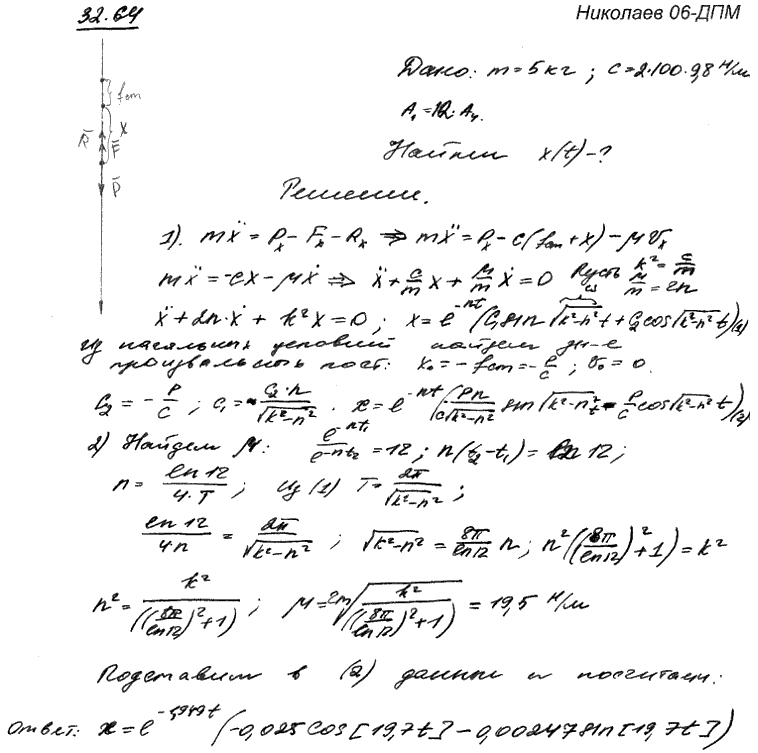 32.64 Николаев 06-ДПМ
Дано: m=5кг ; c=2·100·9,8 Н/м
A₁=12·A₄.
Найти x(t)-?
Решение.
fст
x
R̄ F̄
P̄
1). mẍ = Pₓ - Fₓ - Rₓ ⇒ mẍ = Pₓ - c(fст+x) - μVₓ
mẍ = -cx - μẋ ⇒ ẍ + c/m x + μ/m ẋ = 0 Пусть k² = c/m μ/m = 2n
ẍ + 2n·ẋ + k²x = 0 ; x = e^(-nt) (C₁ sin √(k²-n²) t + C₂ cos √(k²-n²) t) (1)
Из начальных условий найдем зн-е
произвальных пост: x₀ = -fст = -P/c ; V₀ = 0.
C₂ = -P/c ; C₁ = C₂·n/√(k²-n²) . x = e^(-nt) (Pn/(c√(k²-n²)) sin √(k²-n²) t - P/c cos √(k²-n²) t) (2)
2) Найдем μ: e^(-nt₁)/e^(-nt₂) = 12 ; n(t₂-t₁) = ln 12 ;
n = ln 12/(4·T) ; Из (1) T = 2π/√(k²-n²) ;
ln 12/4n = 2π/√(k²-n²) ; √(k²-n²) = 8π/ln12 n ; n²((8π/ln12)²+1) = k²
n² = k²/((8π/ln12)²+1) ; μ = 2m √(k²/((8π/ln12)²+1)) = 19,5 Н/м
Подставим в (2) данные и посчитаем:
Ответ: x = e^(-1,949t) (-0,025 cos [19,7t] - 0,00247 sin [19,7t])